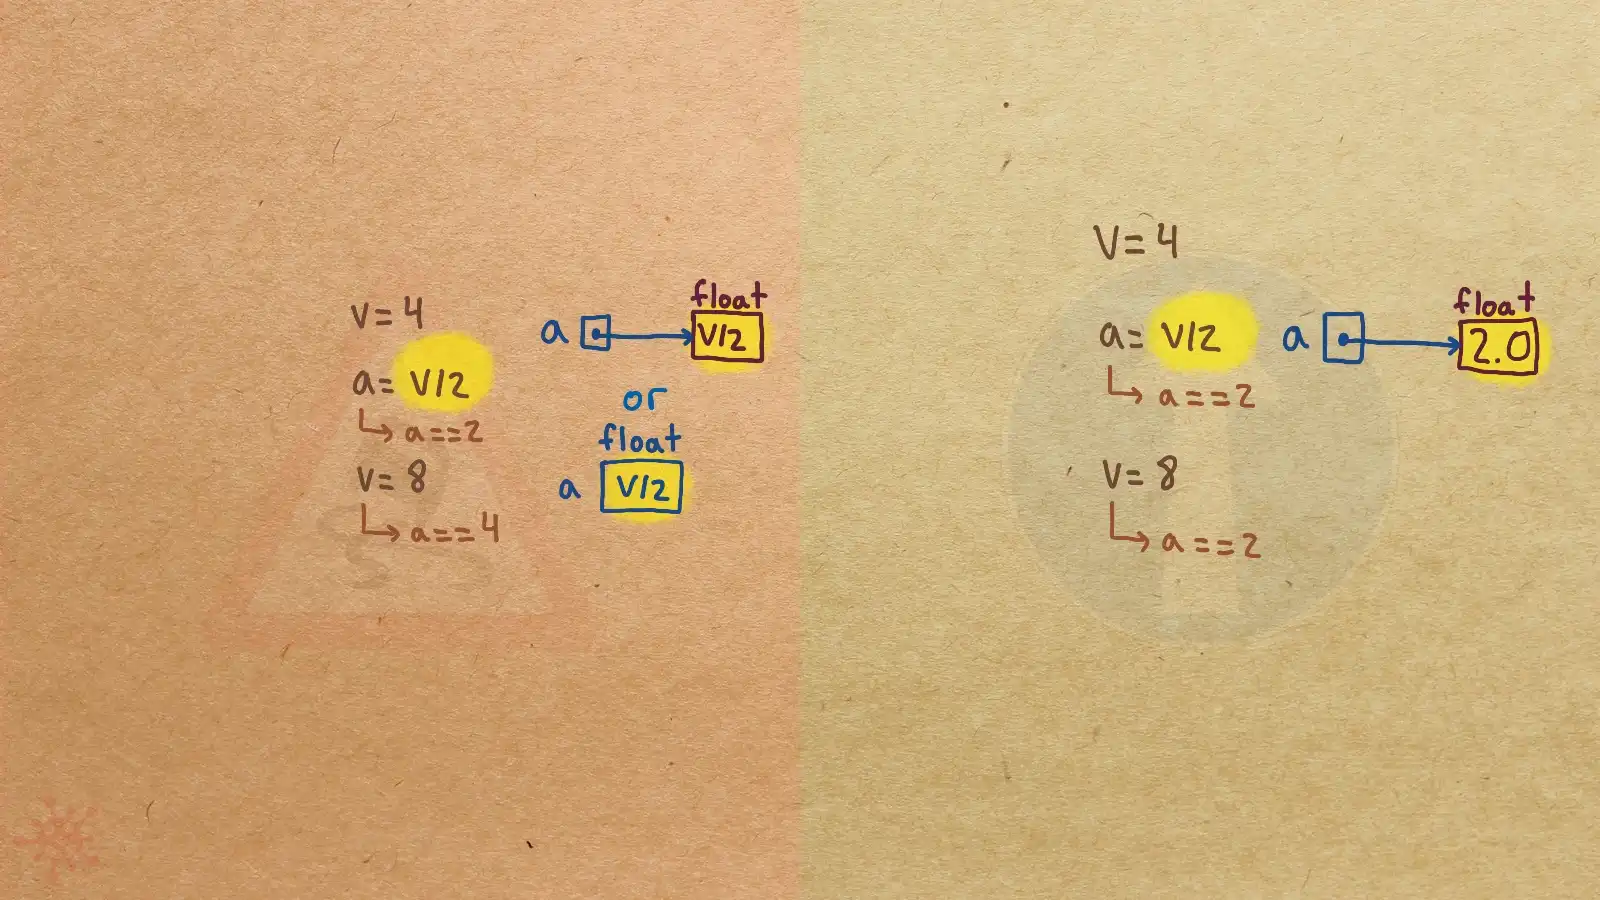 v = 4
a = V/2
a == 2
v = 8
a == 4
a
float
V/2
or
float
a
V/2
V = 4
a = V/2
a == 2
V = 8
a == 2
a
float
2.0